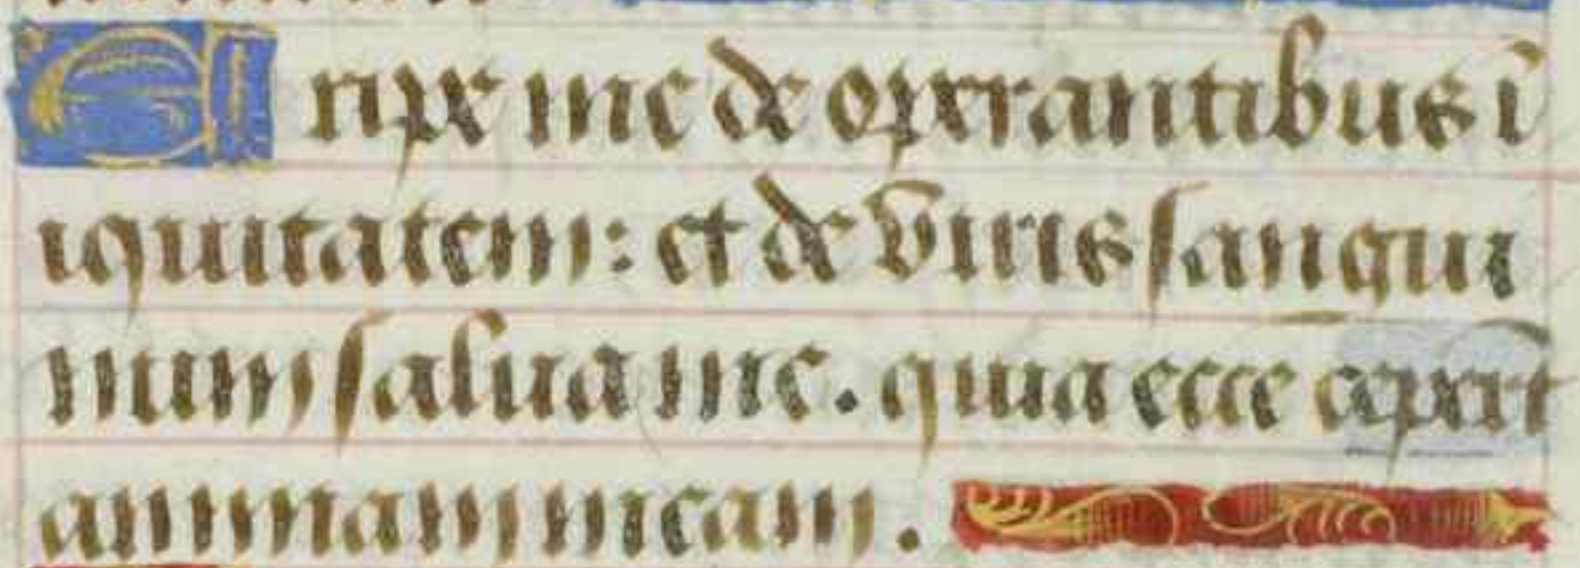 Eripe me de operantibus ī
iquitatem: et de viris sangui
num salua me. quia ecce ceperūt
animam meam.